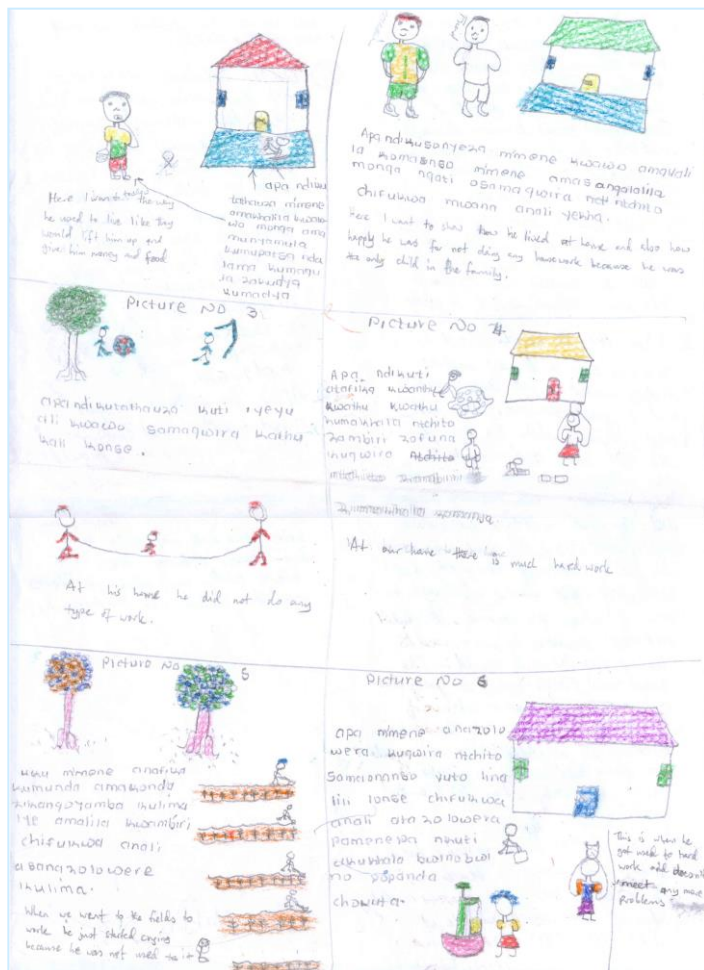 Here I want to show the way
he used to live like they
would lift him up and
give him money and food
apa ndiku
tathauza mimene
amakhalila kwawo
wo monga ama
munyamula
kumupatsa nda
lama kumagu
la zakudya
kumadya
Apa ndikusonyeza mimene kwawo amakhali
la komanso mimene amasangalalila
monga ngati osamagwira ntchito
chifukwa mwana anali yekha.
Here I want to show how he lived at home and also how
happy he was for not doing any housework because he was
the only child in the family.
Picture NO 3
apa ndikutathauza kuti iyeyu
ali kwawo samagwira kathu
kali konse.
At his home he did not do any
type of work.
Picture No 4
Apa ndikuti
atafika kwanthu
kwathu kwathu
kumakhala ntchito
zambiri zofuna
kugwira ntchito
At our home there is much hard work
Picture No 5
uku mimene anafika
kumunda amakonda
kumangoyamba kulima
chifukwa anali
asanazolowere
kulima.
When we went to the fields to
work he just started crying
because he was not used to it
Picture No 6
apa mimene anazolo
wera kugwira ntchito
vuto lina
lili lonse chifukwa
anali atazolowera
pamenepa nkuti
akukhala bwino bwi
no popanda
chovuta.
This is when he
got used to hard
work and doesn't
meet any more
problems